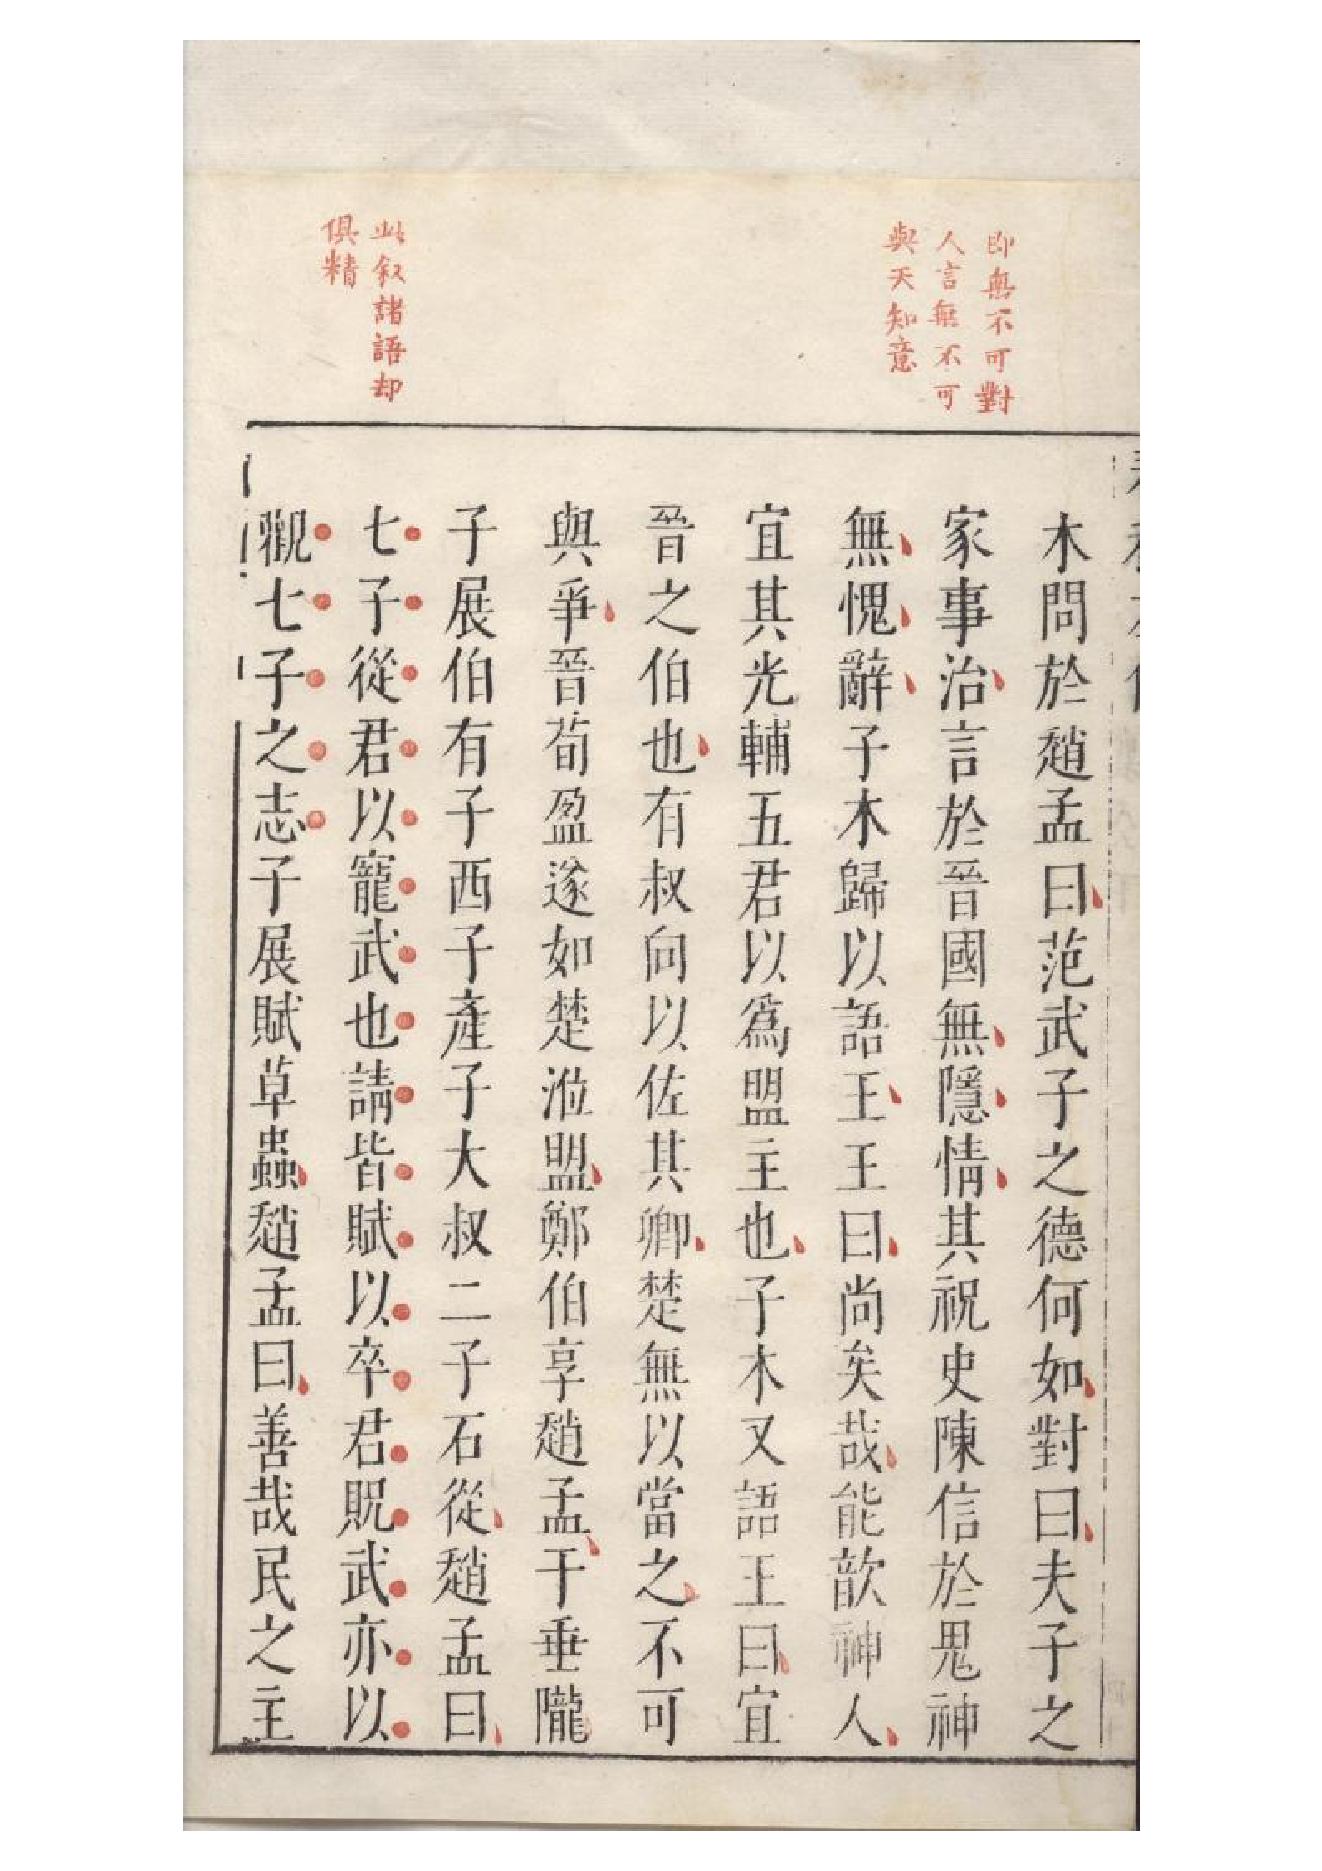 即無不可對
人言無不可
與天知意
木問於趙孟曰范武子之德何如對曰夫子之
家事治言於晉國無隱情其祝史陳信於鬼神
無愧辭子木歸以語王王曰尚矣哉能歆神人
宜其光輔五君以爲盟主也子木又語王曰宜
晉之伯也有叔向以佐其卿楚無以當之不可
與爭晉荀盈遂如楚涖盟鄭伯享趙孟于垂隴
子展伯有子西子產子大叔二子石從趙孟曰
此叙諸語却
俱精
七子從君以寵武也請皆賦以卒君貺武亦以
觀七子之志子展賦草蟲趙孟曰善哉民之主